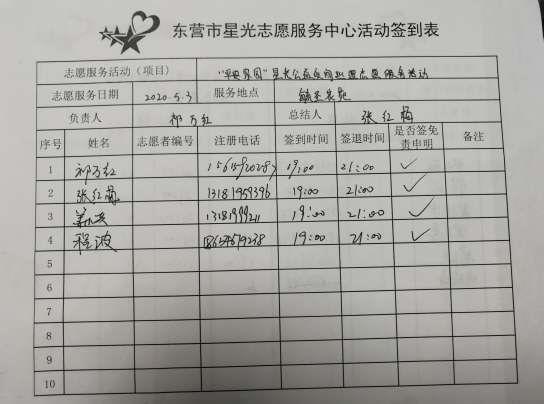 东营市星光志愿服务中心活动签到表
志愿服务活动（项目） "平安家园"星光公益夜间巡逻志愿服务活动
志愿服务日期 2020.5.3 服务地点
负责人 祁万红 总结人 张红梅
序号 姓名 志愿者编号 注册电话 签到时间 签退时间 是否签免责申明 备注
1 祁万红 19:00 21:00 ✓
2 张红梅 13181959396 19:00 21:00 ✓
3 19:00 21:00 ✓
4 程波 19:00 21:00 ✓
5
6
7
8
9
10